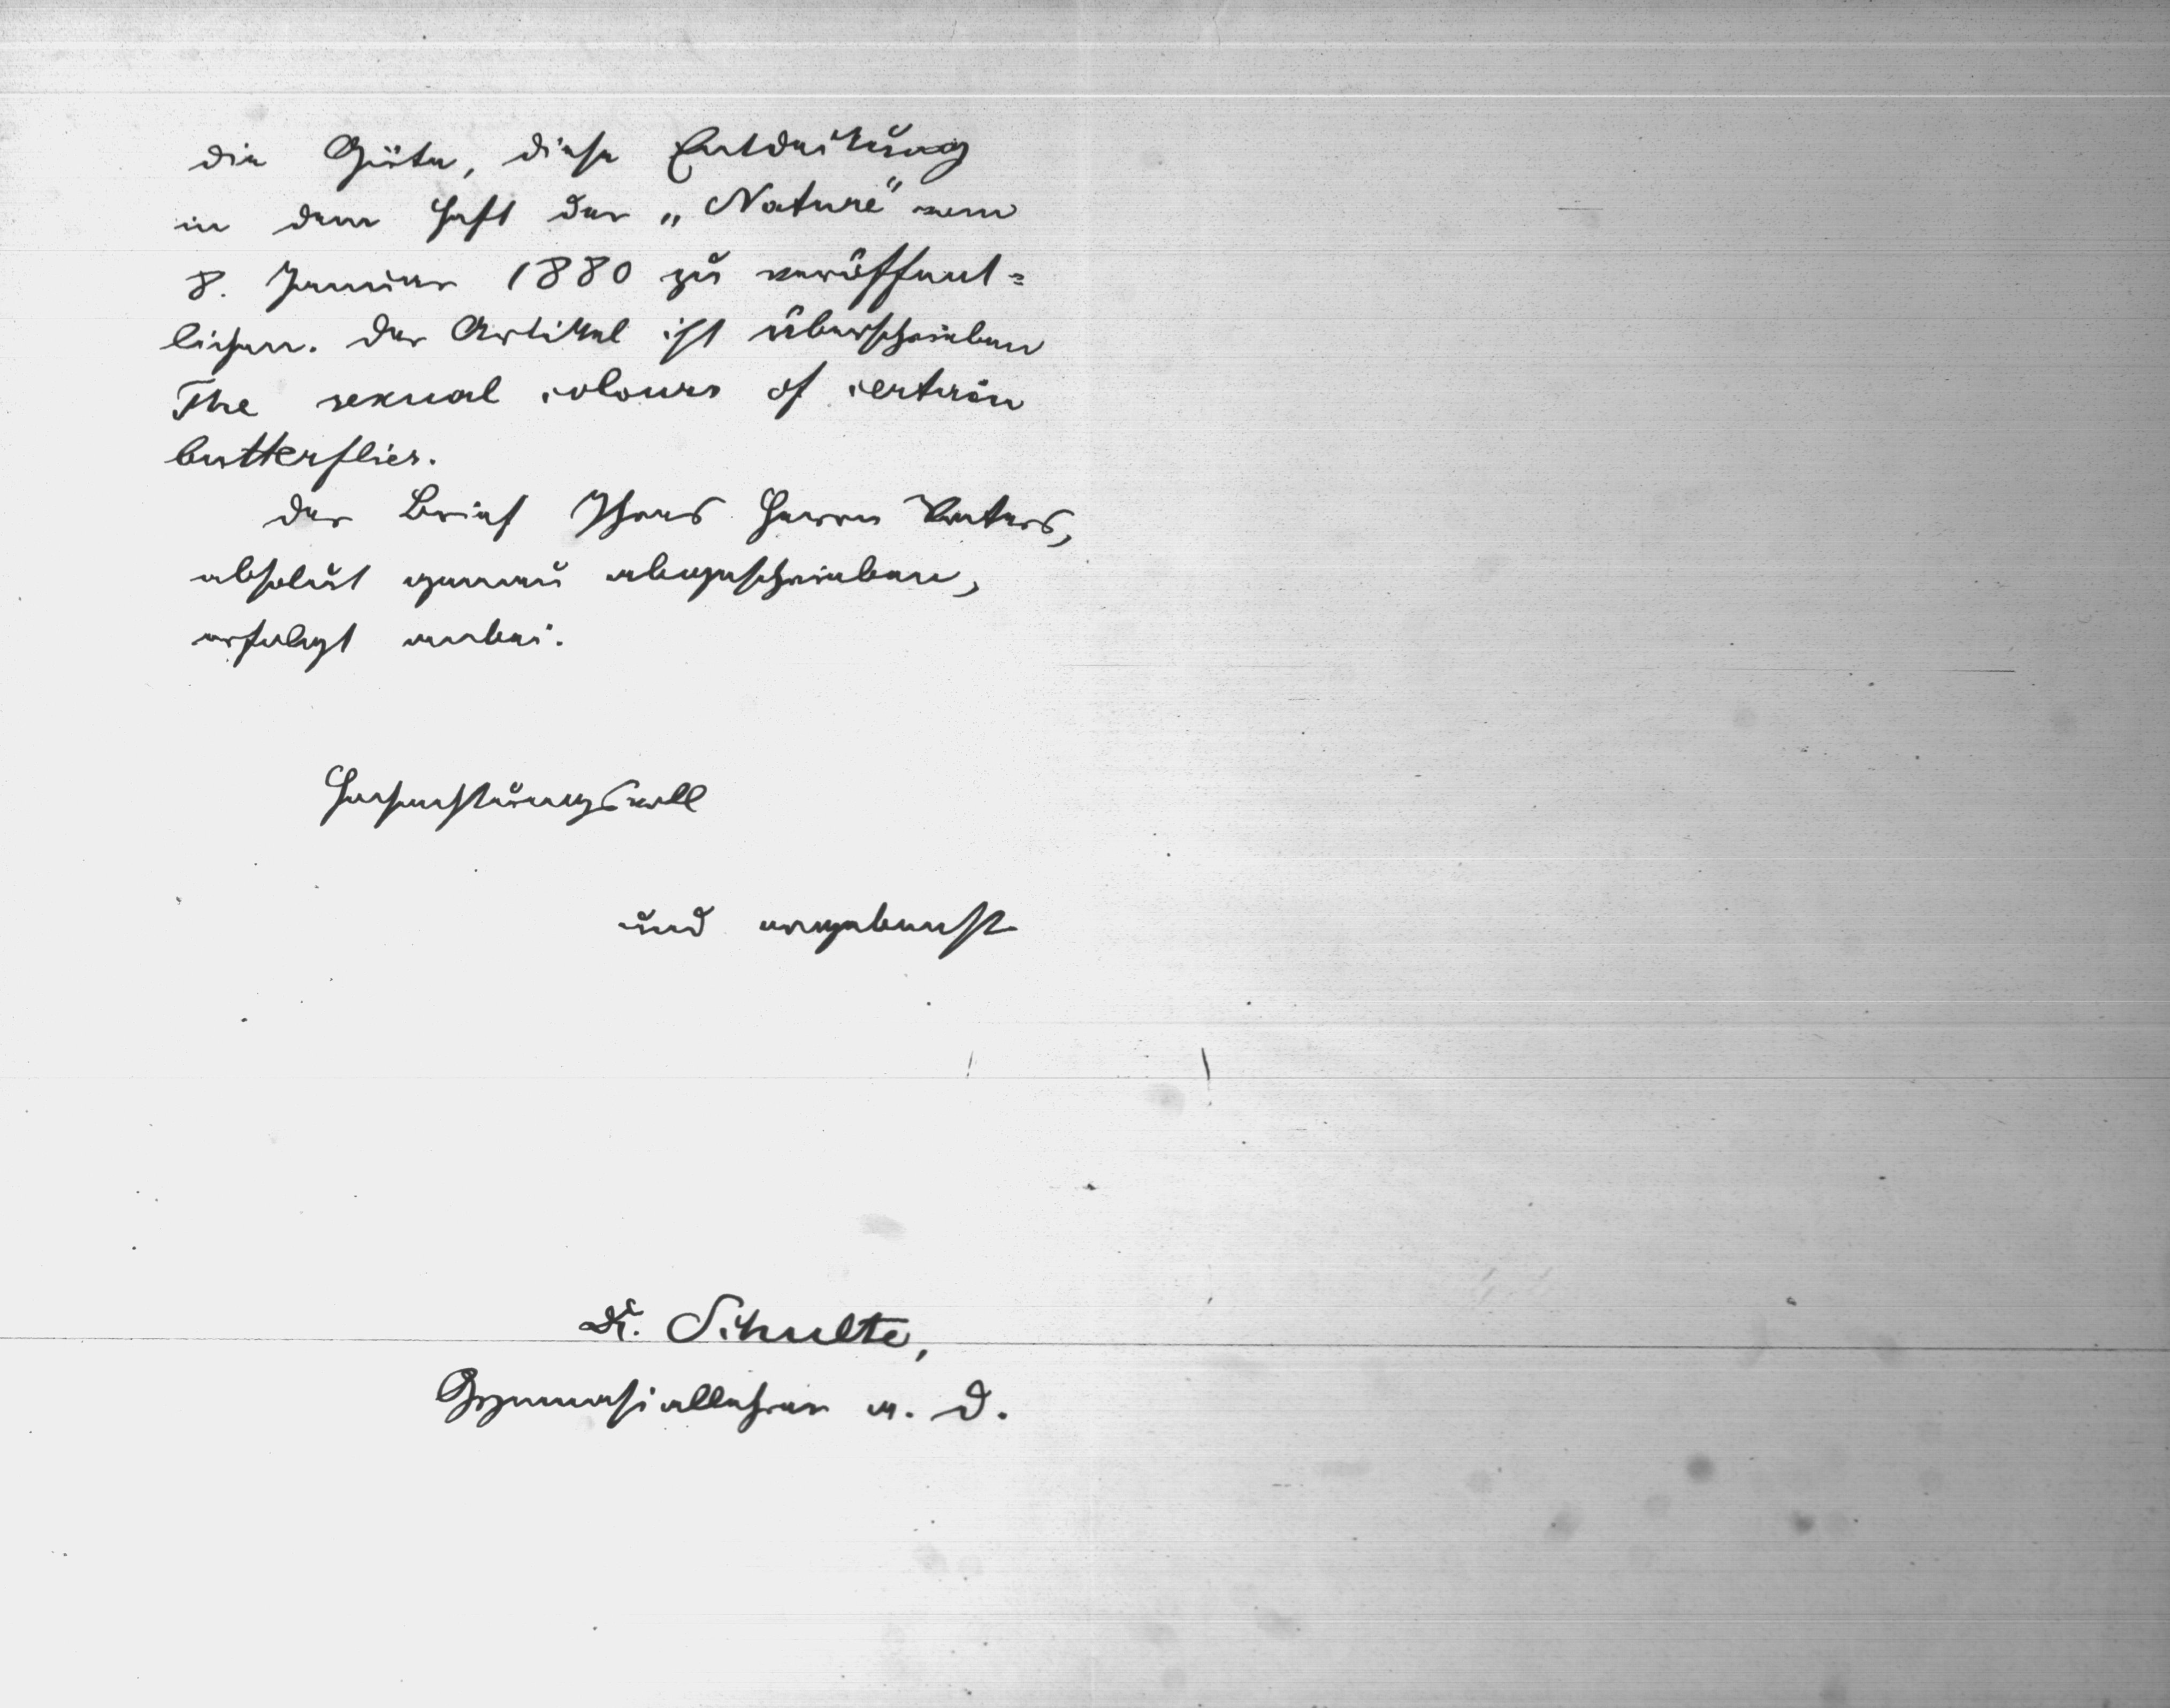 die Güte, diese Entdeckung
in dem Heft der „Nature" vom
8. Januar 1880 zu veröffent=
lichen. Der Artikel ist überschrieben
The sexual colours of certain
butterflies.
Der Brief Ihres Herrn Vaters,
absolut genau abgeschrieben,
erfolgt anbei.
Hochachtungsvoll
und ergebenst
Dr. Schulte,
Gymnasiallehrer a. D.